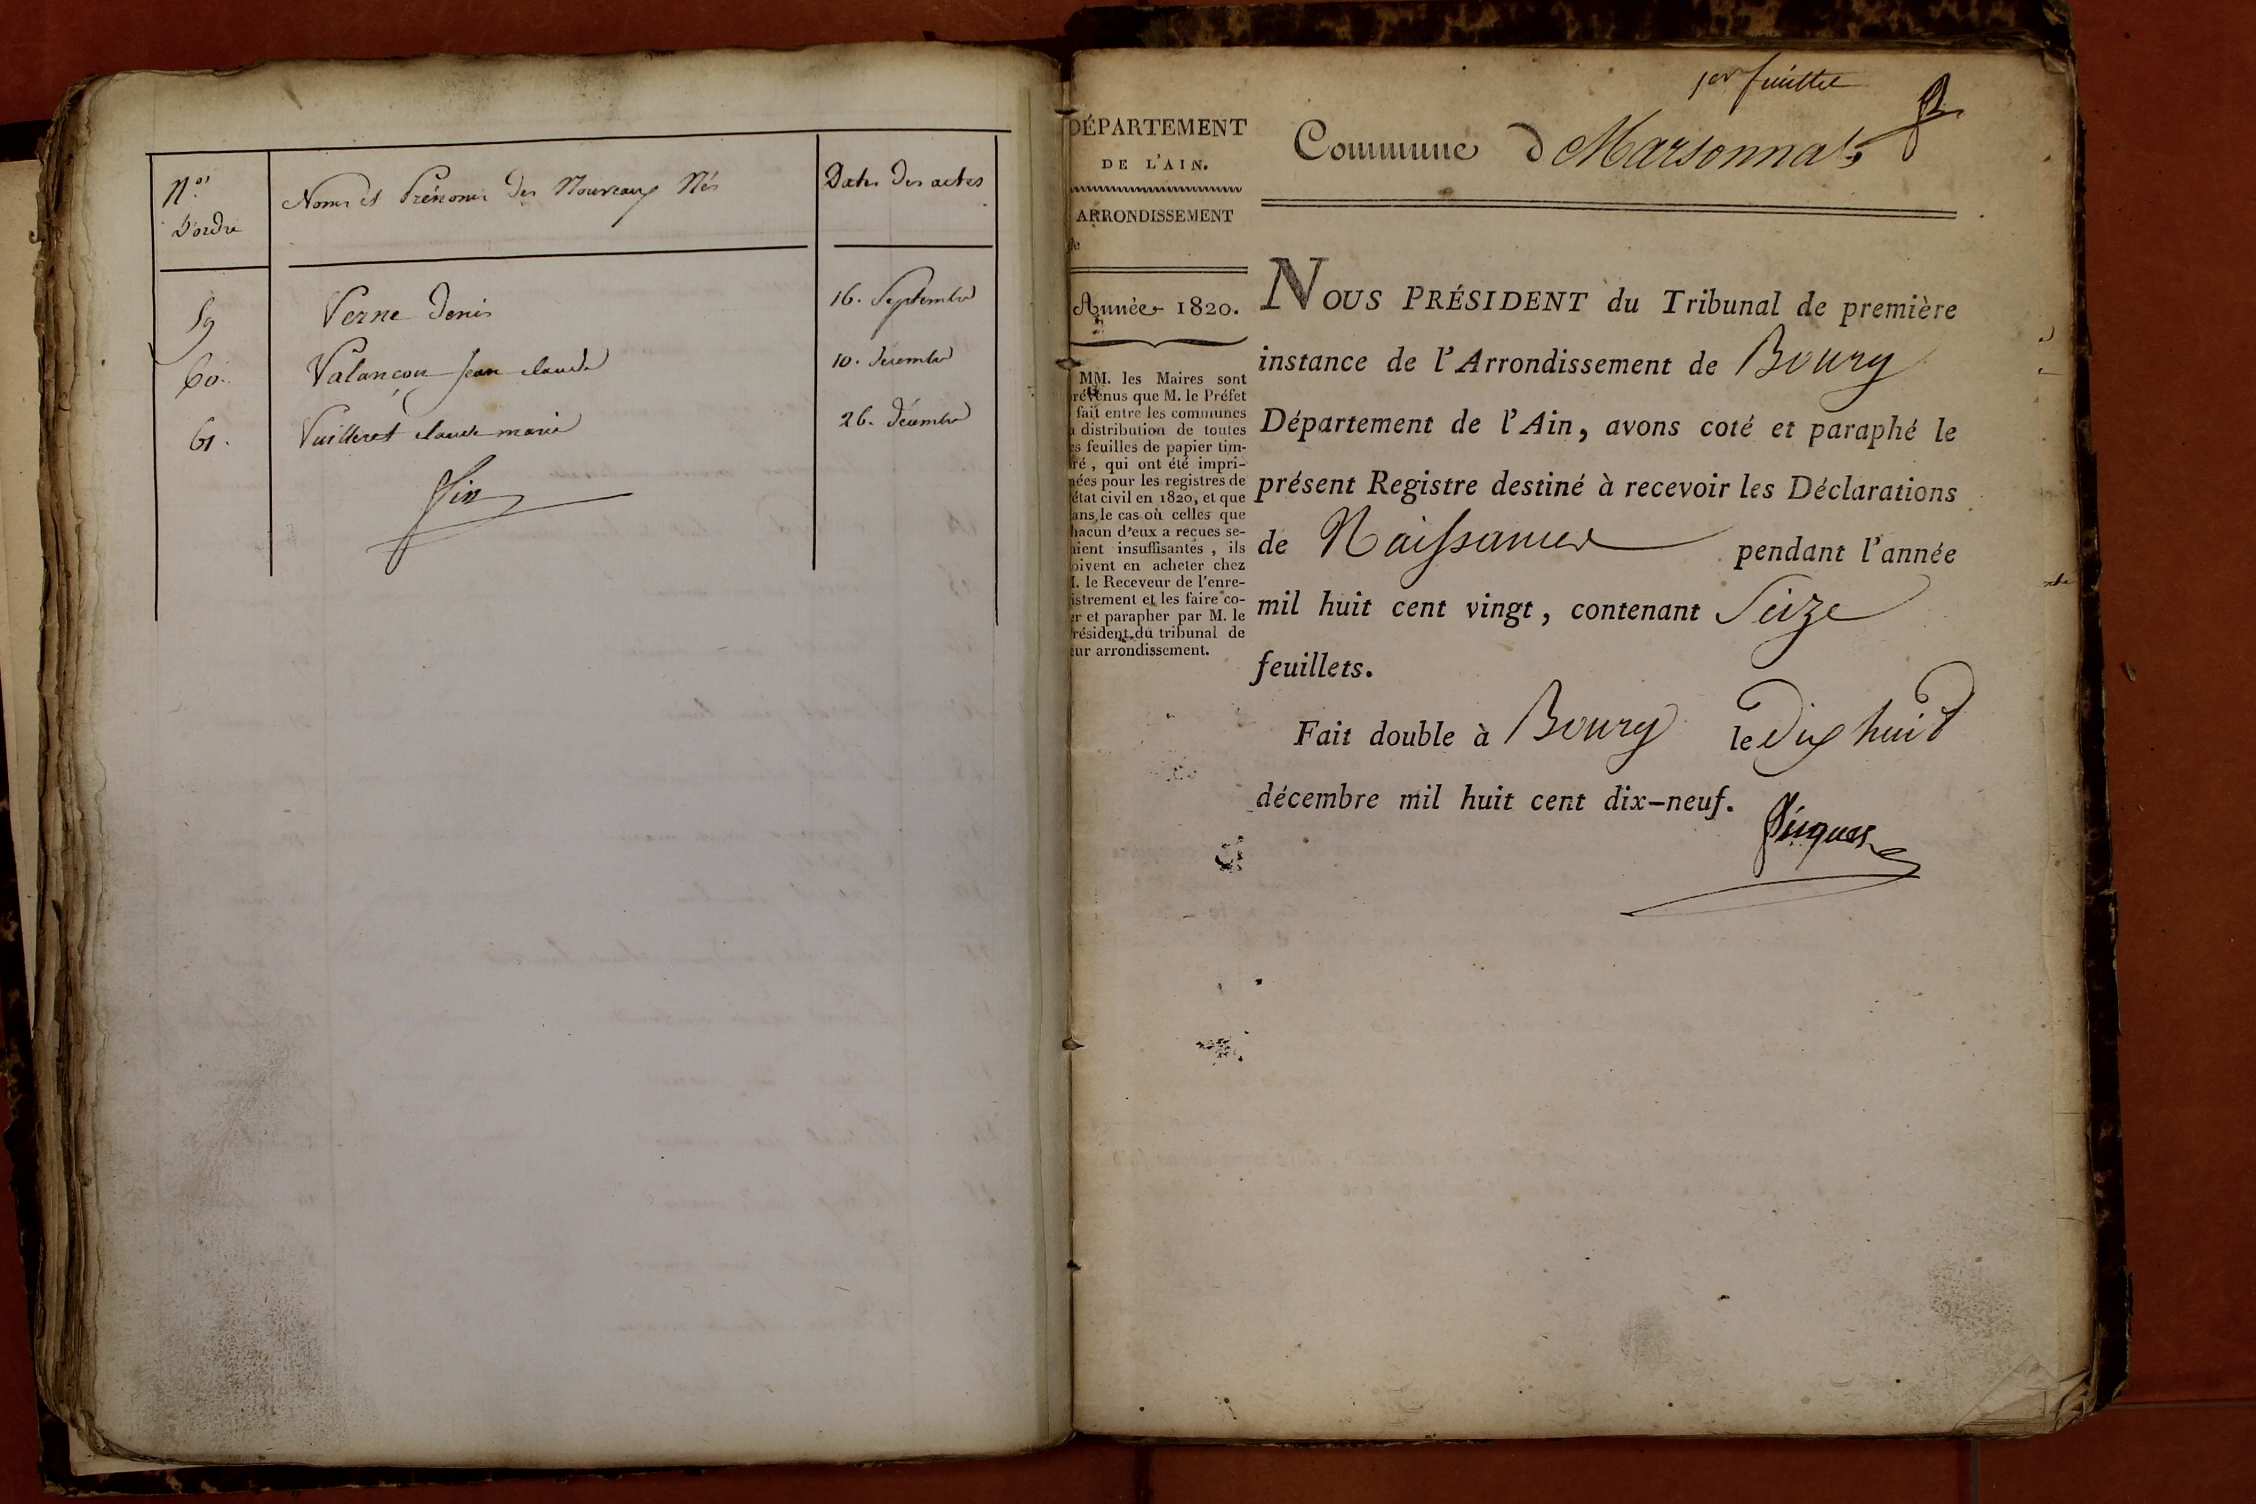 Nos
D'ordre
Noms et Prénoms Des Nouveaux Nés
Dates Des actes
59 Verne Denis 16. Septembre
60. Valançon Jean claude 10. decembre
61. Vuilleret claude marie 26. Décembre
Fin
1er feuillet
DÉPARTEMENT
DE L'AIN.
ARRONDISSEMENT
de
Année 1820.
MM. les Maires sont
révenus que M. le Préfet
fait entre les communes
a distribution de toutes
es feuilles de papier tim-
ré, qui ont été impri-
mées pour les registres de
état civil en 1820, et que
ans le cas où celles que
hacun d'eux a reçues se-
aient insuffisantes, ils
oivent en acheter chez
M. le Receveur de l'enre-
istrement et les faire co-
er et parapher par M. le
résident du tribunal de
eur arrondissement.
Commune d Marsonnas
NOUS PRÉSIDENT du Tribunal de première
instance de l'Arrondissement de Bourg
Département de l'Ain, avons coté et paraphé le
présent Registre destiné à recevoir les Déclarations
de Naissances pendant l'année
mil huit cent vingt, contenant Seize
feuillets.
Fait double à Bourg le Dix huit
décembre mil huit cent dix-neuf.